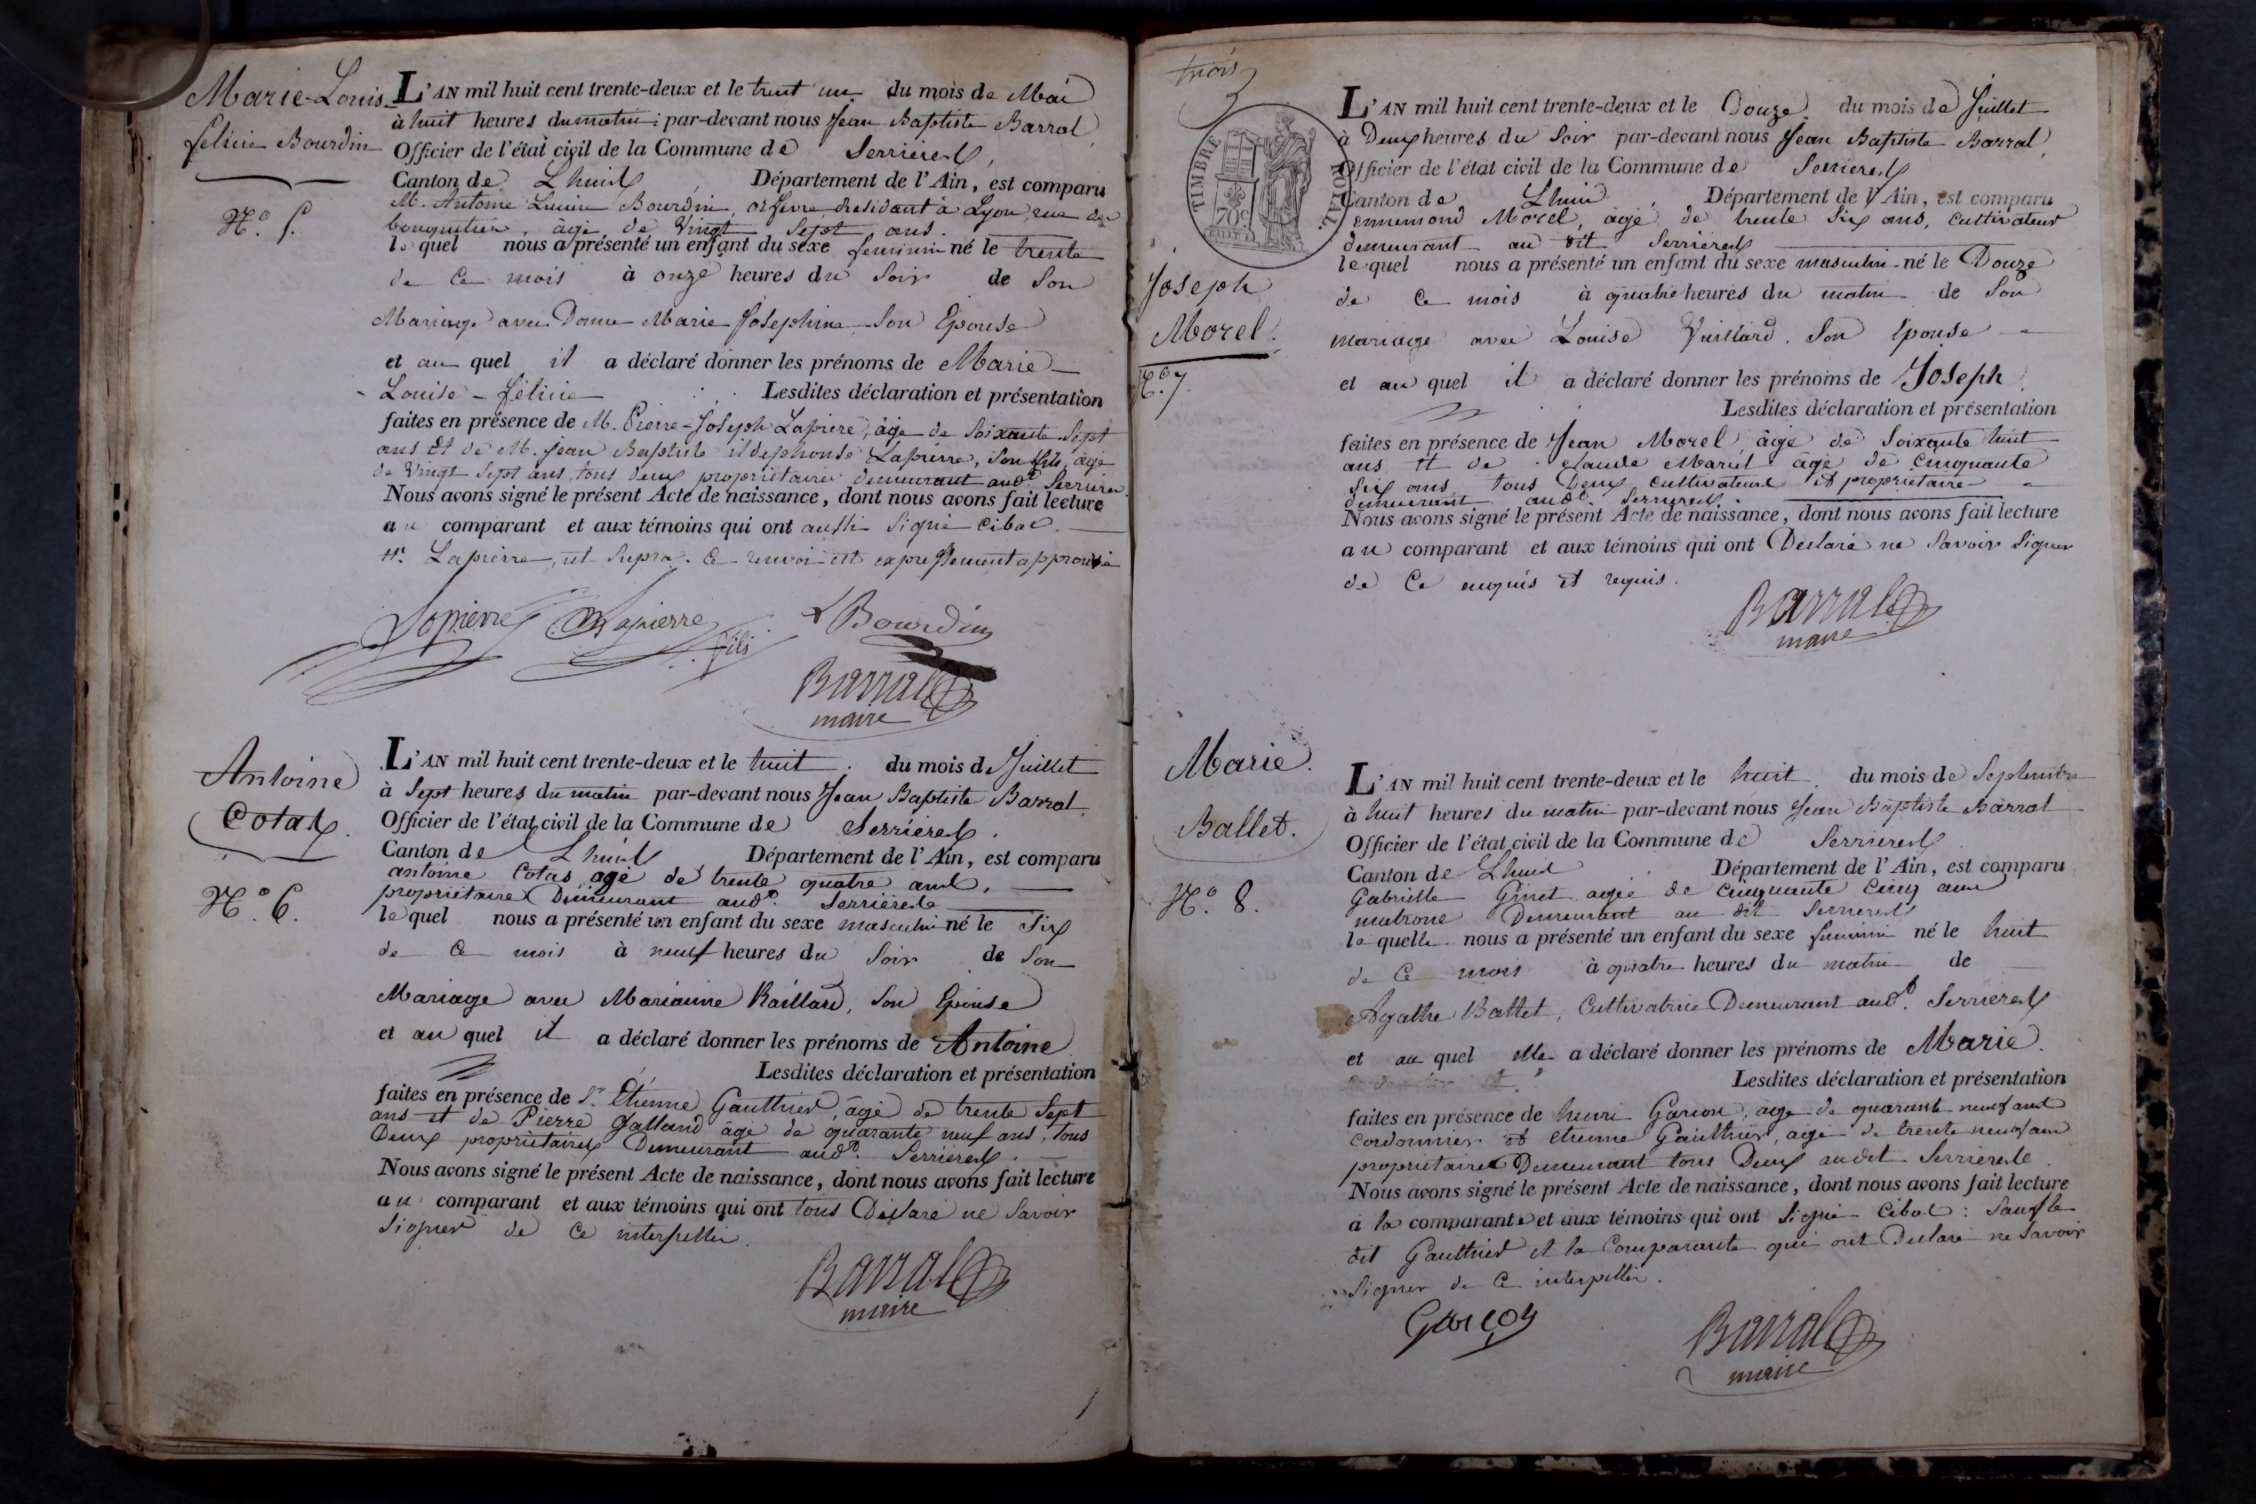 Marie-Louis-
félicie Bourdin
N.o 5.
L'AN mil huit cent trente-deux et le trent'un du mois de Mai
à huit heures du matin par-devant nous Jean Baptiste Barral,
Officier de l'état civil de la Commune de Serrieres,
Canton de Lhuis, Département de l'Ain, est comparu
M. Antoine Lucien Bourdin, orfevre residant à Lyon, rue de
bouquetier, âgé de Vingt Sept ans.
le quel nous a présenté un enfant du sexe feminin né le trente
de ce mois à onze heures du Soir de Son
Mariage avec Dame Marie Josephine Son Epouse
et au quel il a déclaré donner les prénoms de Marie-
Louise-félicie Lesdites déclaration et présentation
faites en présence de M. Pierre-Joseph Lapierre, âgé de Soixante Sept
ans Et de M. Jean Baptiste ildephonse Lapierre, Son fils, âgé
de Vingt Sept ans, tous deux propriétaires demeurant aud.t Serrieres.
Nous avons signé le présent Acte de naissance, dont nous avons fait lecture
au comparant et aux témoins qui ont aussi Signé cibas.
Lapierre, ut Supra. Ce renvoi est expressement approuvé
Lapierre Lapierre fils Bourdin
Barral
maire
Antoine
Cotas.
N.o 6.
L'AN mil huit cent trente-deux et le huit. du mois de Juillet
à Sept heures du matin par-devant nous Jean Baptiste Barral.
Officier de l'état civil de la Commune de Serrieres.
Canton de Lhuis Département de l'Ain, est comparu
antoine Cotas agé de trente quatre ans,
propriétaire Demeurant aud.t Serrieres
le quel nous a présenté un enfant du sexe masculin né le Six
de ce mois à neuf heures du Soir de Son
Mariage avec Marianne Raillard, Son Epouse
et au quel il a déclaré donner les prénoms de Antoine
Lesdites déclaration et présentation
faites en présence de S.r Etienne Gauthier, âgé de trente Sept
ans et de Pierre Galland âgé de quarante neuf ans, tous
Deux propriétaires Demeurant aud.t Serrieres.
Nous avons signé le présent Acte de naissance, dont nous avons fait lecture
au comparant et aux témoins qui ont tous Déclaré ne Savoir
Signer de ce interpellés.
Barral
maire
trois
TIMBRE ROYAL
70c
Joseph
Morel.
N.o 7.
L'AN mil huit cent trente-deux et le Douze. du mois de Juillet
à Deux heures du Soir par-devant nous Jean Baptiste Barral,
Officier de l'état civil de la Commune de Serrieres
Canton de Lhuis, Département de l'Ain, est comparu
ennemond Morel, âgé de trente Six ans, cultivateur
demeurant au dit Serrieres
le quel nous a présenté un enfant du sexe masculin né le Douze
de ce mois à quatre heures du matin de Son
mariage avec Louise Vuillard. Son Epouse
et au quel il a déclaré donner les prénoms de Joseph.
Lesdites déclaration et présentation
faites en présence de Jean Morel âgé de Soixante huit
ans et de Claude Mariel âgé de Cinquante
Six ans, tous Deux cultivateurs et propriétaire
demeurant aud.t Serrieres.
Nous avons signé le présent Acte de naissance, dont nous avons fait lecture
au comparant et aux témoins qui ont Déclaré ne Savoir Signer
de Ce enquis et requis.
Barral
maire
Marie.
Ballet.
N.o 8.
L'AN mil huit cent trente-deux et le huit du mois de Septembre
à huit heures du matin par-devant nous Jean Baptiste Barral
Officier de l'état civil de la Commune de Serrieres
Canton de Lhuis Département de l'Ain, est comparu
Gabrielle Ginet agée de Cinquante Cinq ans
matrone Demeurant au dit Serrieres
la quelle nous a présenté un enfant du sexe feminin né le huit
de Ce mois à quatre heures du matin de
Agathe Ballet, Cultivatrice Demeurant aud.t Serrieres
et au quel elle a déclaré donner les prénoms de Marie.
Lesdites déclaration et présentation
faites en présence de henri Garcon, âgé de quarante neuf ans
Cordonnier et etienne Gauthier, agé de trente neuf ans
propriétaire Demeurant tous Deux audit Serrieres
Nous avons signé le présent Acte de naissance, dont nous avons fait lecture
à la comparante et aux témoins qui ont Signé Cibas: Sauf le
dit Gauthier et la Comparante qui ont Déclaré ne Savoir
Signer de Ce interpellés.
Garcon
Barral
maire